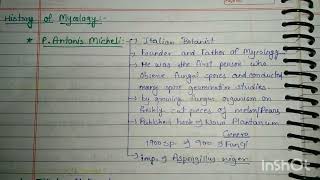 History of Mycology:-
* P. Antonio Micheli:- → Italian Botanist
→ Founder and Father of Mycology
→ He was the first person who
observe fungal spores and conducted
many spore germination studies.
→ by growing fungus organism on
freshly cut pieces of melon/Pears
→ Published book of Nova Plantarum
Genera
1900 sp. of 900 of Fungi
→ imp. of Aspergillus niger.
InShot